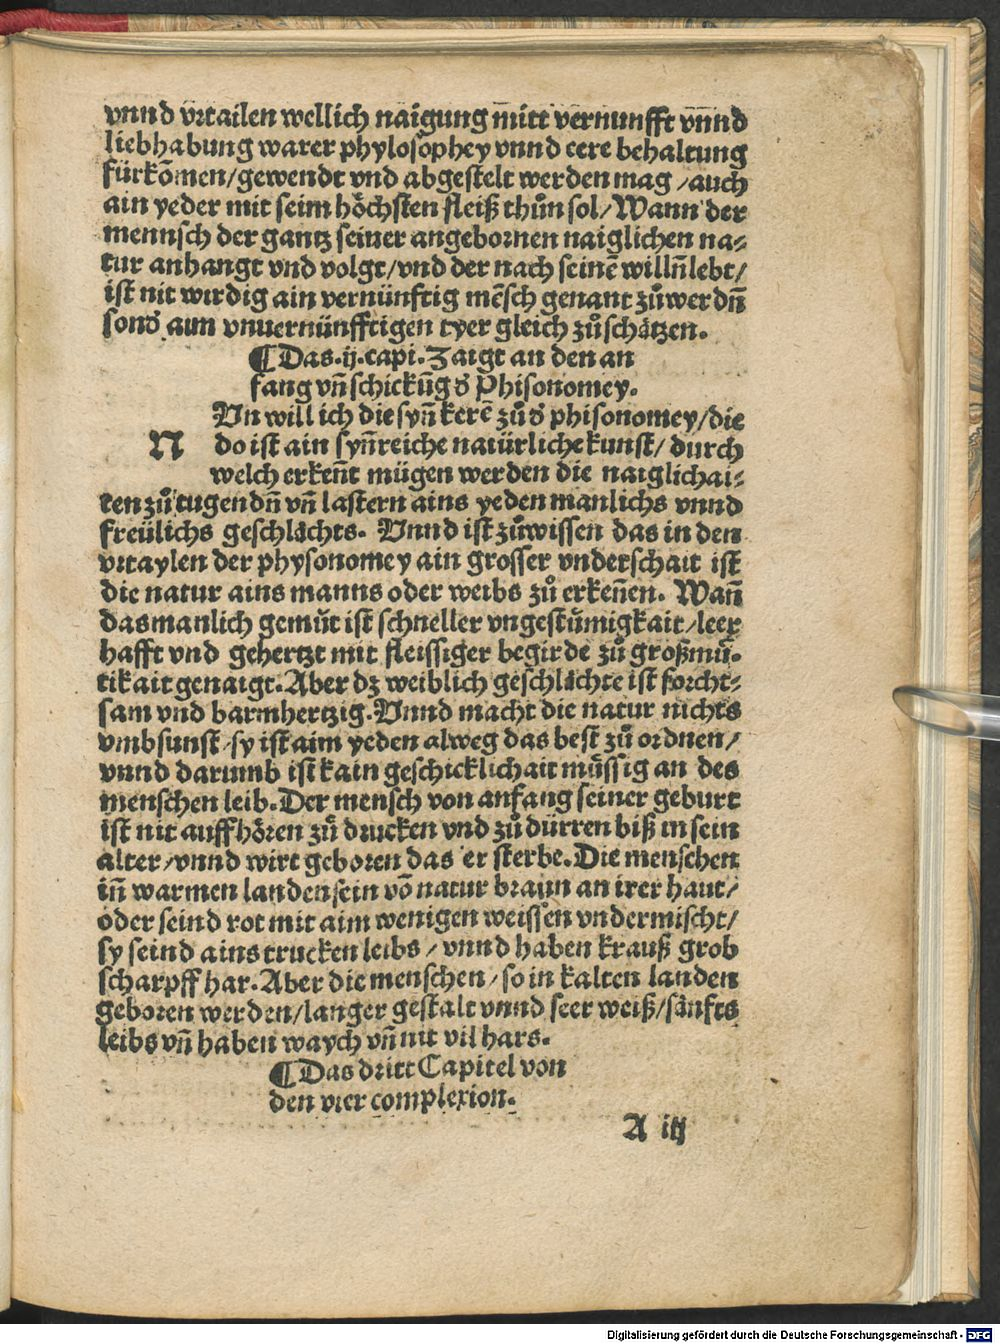 vnnd vrtailen wellich naigung mitt vernunfft vnnd
liebhabung warer phylosophey vnnd eere behaltung
fürkōmen/gewendt vnd abgestelt werden mag/auch
ain yeder mit seim höchsten fleiß thůn sol/Wann der
mennsch der gantz seiner angebornen naiglichen na⸗
tur anhangt vnd volgt/vnd der nach seinē willn̄ lebt/
ist nit wirdig ain vernünftig mēsch genant zůwerdn̄
sond̕ aim vnuernünfftigen tyer gleich zůschätzen.
¶Das.ij.capi.Zaigt an den an
fang vn̄ schickūg d̕ Phisonomey.
NUn will ich die syn̄ kerē zů d̕ phisonomey/die
do ist ain syn̄reiche natürliche kunst/durch
welch erken̄t mügen werden die naiglichai⸗
ten zů tugendn̄ vn̄ lastern ains yeden manlichs vnnd
freülichs geschlächts. Vnnd ist zůwissen das in den
vrtaylen der physonomey ain grosser vnderschait ist
die natur ains manns oder weibs zů erken̄en. Wan̄
das manlich gemůt ist schneller vngestůmigkait/leer
hafft vnd gehertzt mit fleissiger begirde zů großmů⸗
tikait genaigt.Aber dz weiblich geschlächte ist forcht⸗
sam vnd barmhertzig.Vnnd macht die natur nichts
vmbsunst/sy ist aim yeden alweg das best zů ordnen/
vnnd darumb ist kain geschicklichait müssig an des
menschen leib.Der mensch von anfang seiner geburt
ist nit auffhören zů drucken vnd zů dürren biß in sein
alter/vnnd wirt geboren das er sterbe.Die menschen
in̄ warmen landen sein vō natur braun an irer haut/
oder seind rot mit aim wenigen weissen vndermischt/
sy seind ains trucken leibs/vnnd haben krauß grob
scharpff har.Aber die menschen/so in kalten landen
geboren werden/langer gestalt vnnd seer weiß/sänfts
leibs vn̄ haben waych vn̄ nit vil hars.
¶Das dritt Capitel von
den vier complexion.
A iij
Digitalisierung gefördert durch die Deutsche Forschungsgemeinschaft - DFG